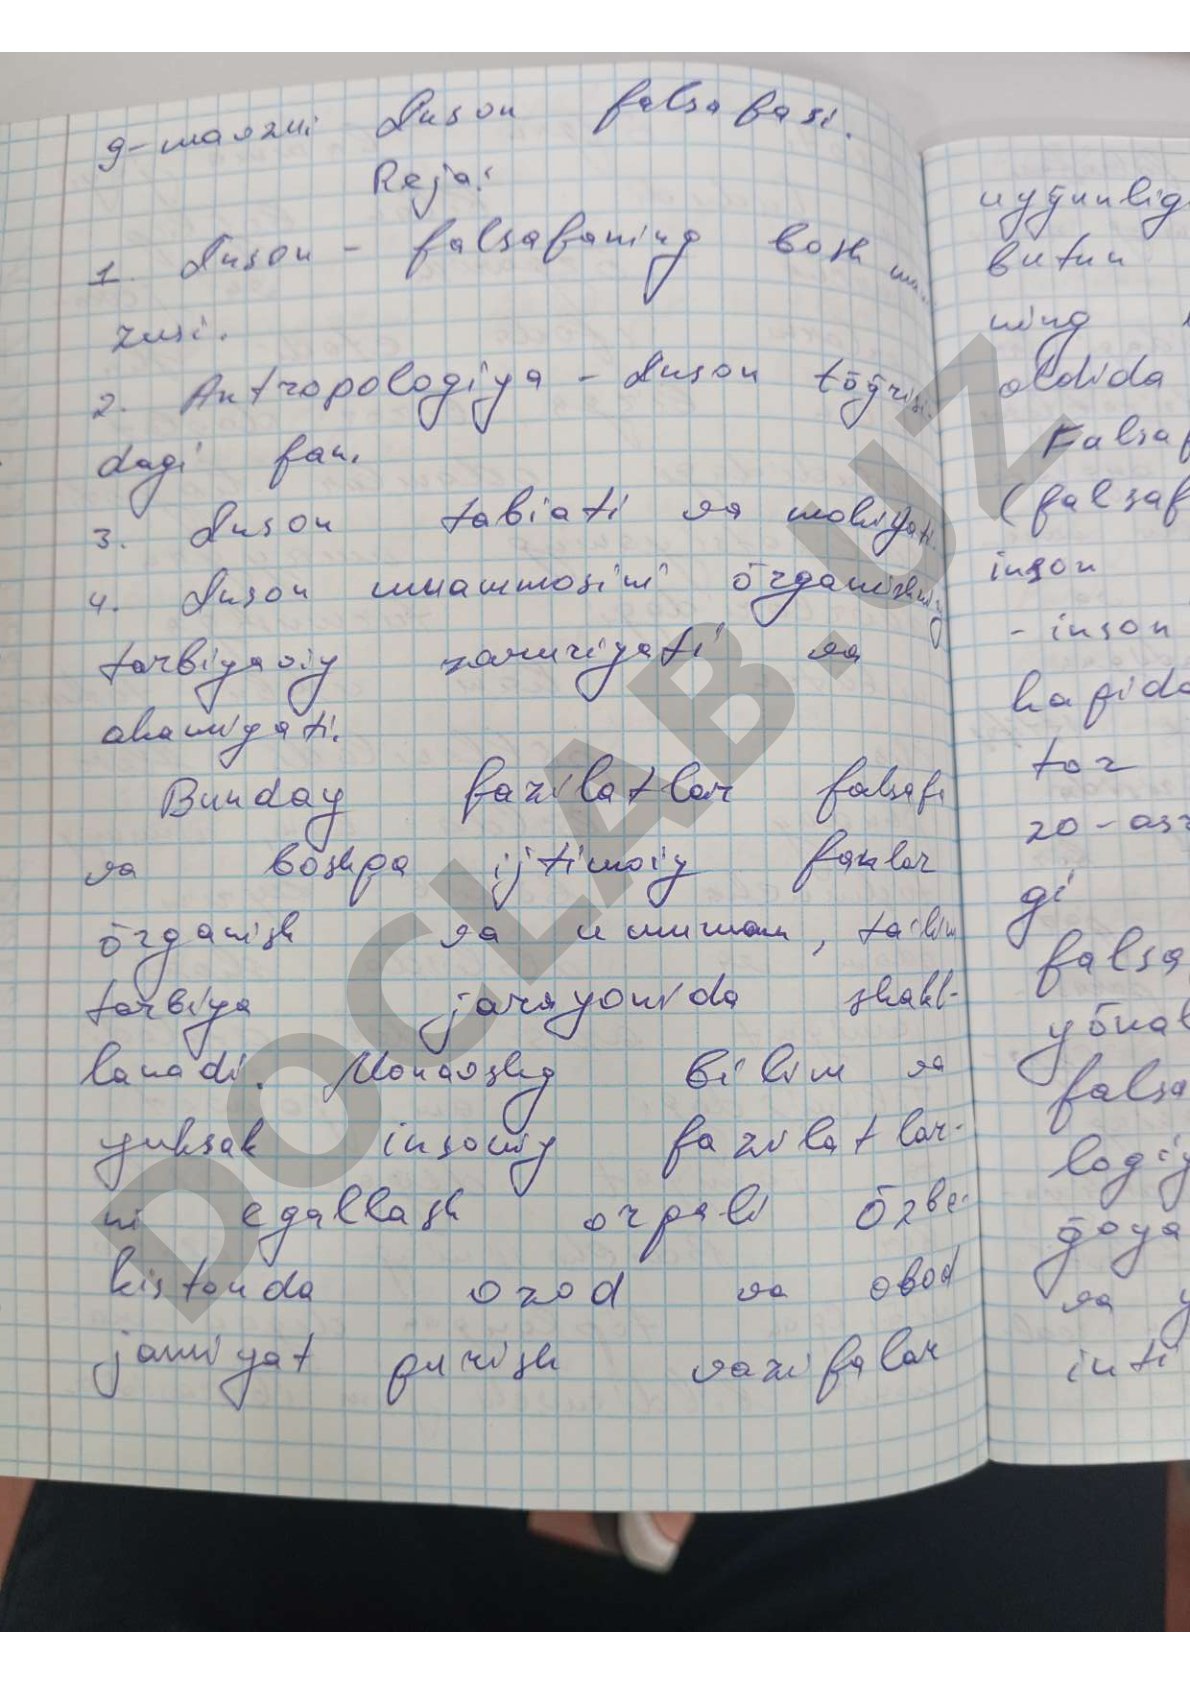 9-mavzui Inson falsafasi.
Reja:
1. Inson - falsafaning bosh
zusi.
2. Antropologiya - Inson tōḡrisi-
dagi fan.
3. Inson tabiati va mohiyati.
4. Inson muammosini ōrganishning
tarbiyaviy zaruriyati va
ahamiyati.
Bunday fazilatlar falsafa
va boshqa ijtimoiy fanlar
ōrganish va umuman, ta'lim
tarbiya jarayonida shakl-
lanadi. Monavshg bilim va
yuksak insoniy fazilatlar-
ni egallash orqali Ōzbe-
kistonda ozod va obod
jamiyat qurish vazifalar
uyḡunligi
butun
ning
oldida
Falsaf
(falsaf
inson
- inson
haqida
tor
20-asr
gi
falsa
yōnal
falsa
logiy
ḡoya
va y
inti
DOCLAB.UZ